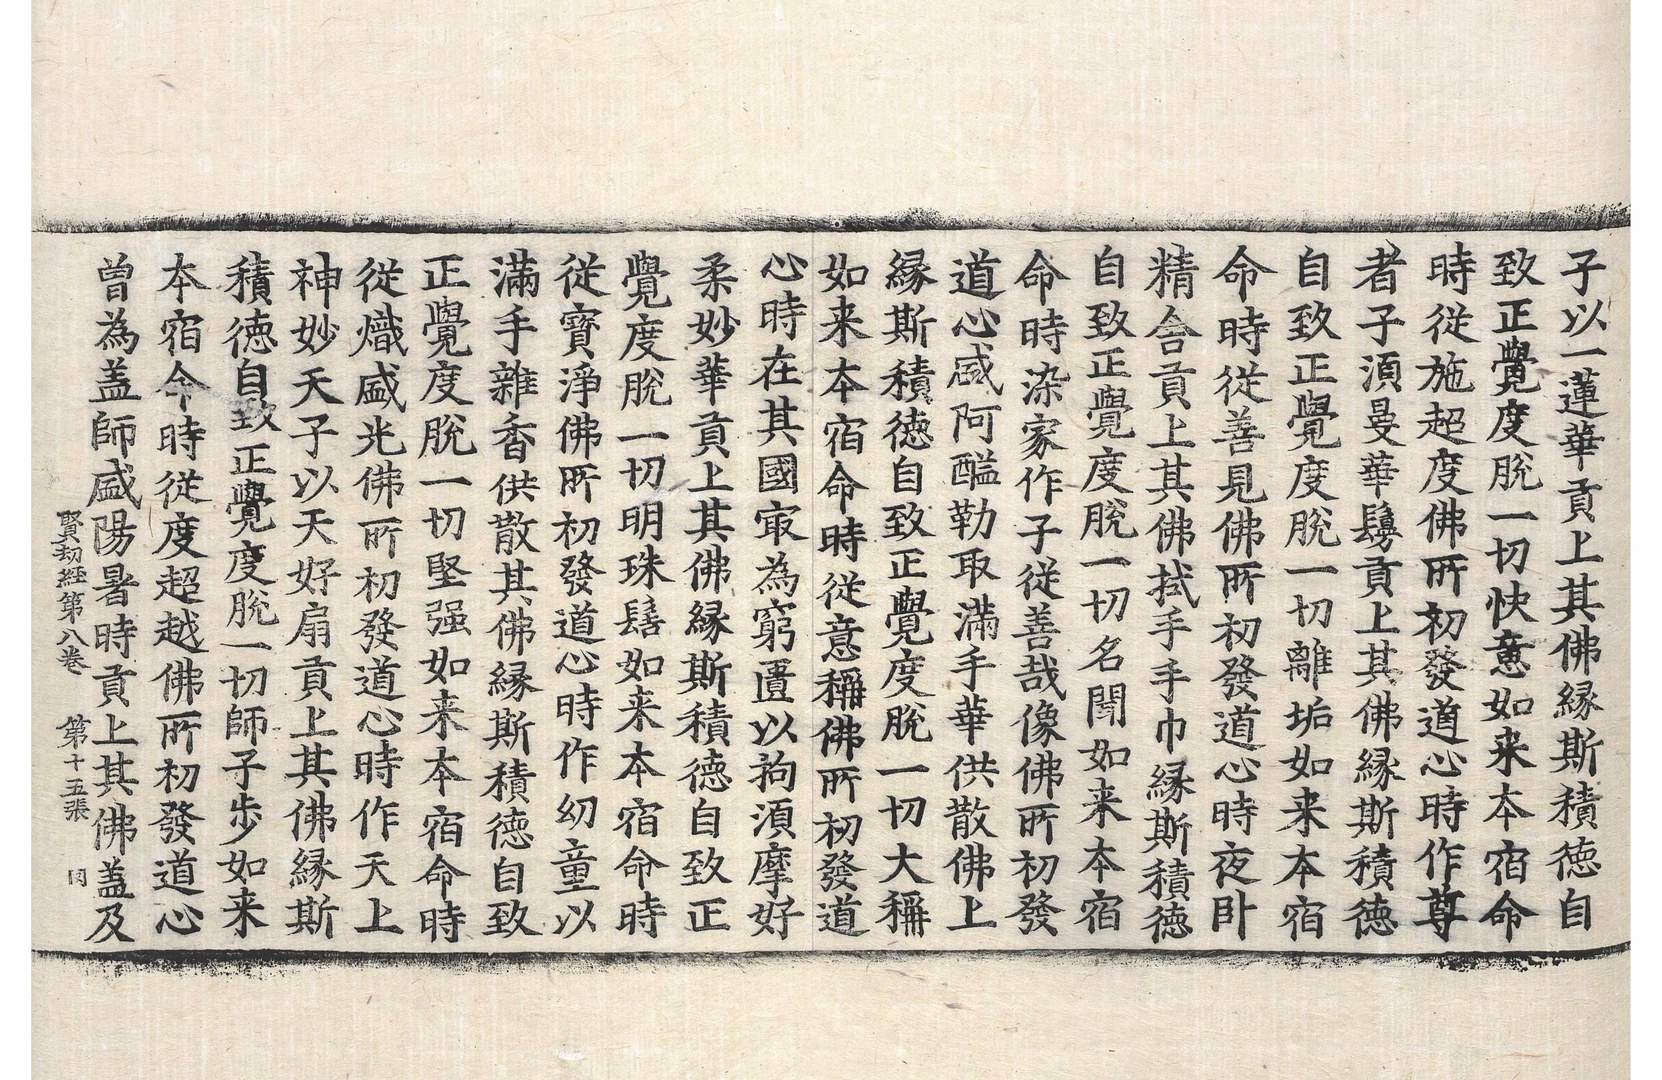 子以一蓮華貢上其佛緣斯積德自
致正覺度脫一切快意如来本宿命
時從施超度佛所初發道心時作尊
者子湏曼華鬘貢上其佛緣斯積德
自致正覺度脫一切離垢如来本宿
命時從善見佛所初發道心時夜卧
精舍貢上其佛拭手手巾緣斯積德
自致正覺度脫一切名聞如来本宿
命時染家作子從善哉像佛所初發
道心盛阿醯勒取滿手華供散佛上
緣斯積德自致正覺度脫一切大稱
如来本宿命時從意稱佛所初發道
心時在其國㝡為窮匱以拘湏摩好
柔妙華貢上其佛緣斯積德自致正
覺度脫一切明珠髻如来本宿命時
從寶淨佛所初發道心時作幼童以
滿手雜香供散其佛緣斯積德自致
正覺度脫一切堅强如来本宿命時
從熾盛光佛所初發道心時作天上
神妙天子以天好扇貢上其佛緣斯
積德自致正覺度脫一切師子步如来
本宿命時從度超越佛所初發道心
曾為盖師盛陽暑時貢上其佛盖及
賢劫經第八卷 第十五張 同